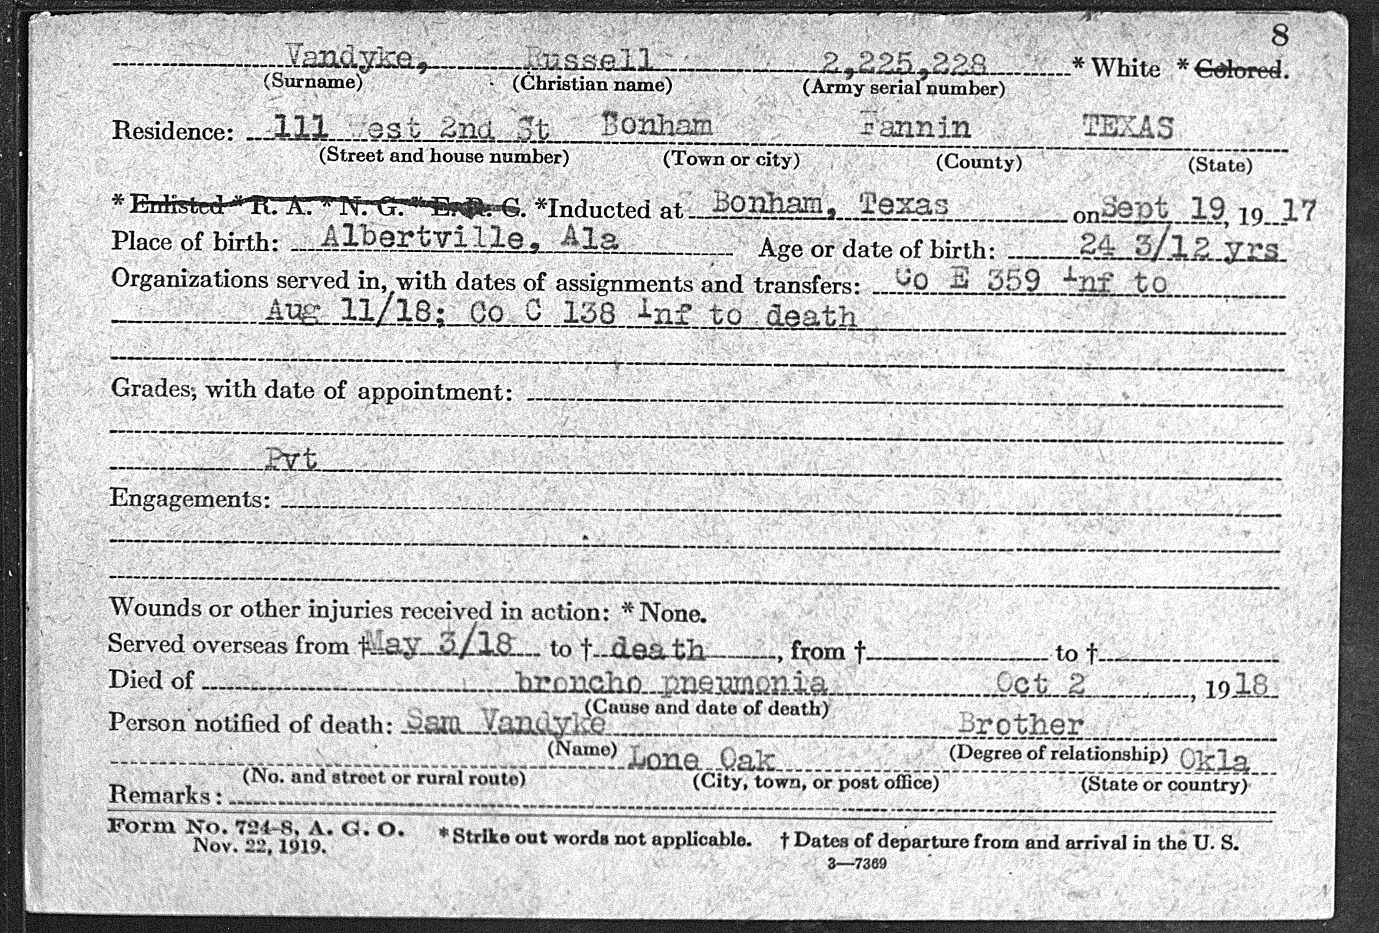 8
Vandyke, Russell 2,225,228 * White * Colored.
(Surname) (Christian name) (Army serial number)
Residence: 111 West 2nd St Bonham Fannin TEXAS
(Street and house number) (Town or city) (County) (State)
* Enlisted * R. A. * N. G. * E. R. C. *Inducted at Bonham, Texas on Sept 19, 1917
Place of birth: Albertville, Ala Age or date of birth: 24 3/12 yrs
Organizations served in, with dates of assignments and transfers: Co E 359 Inf to
Aug 11/18; Co C 138 Inf to death
Grades, with date of appointment:
Pvt
Engagements:
Wounds or other injuries received in action: * None.
Served overseas from † May 3/18 to † death, from † to †
Died of broncho pneumonia Oct 2, 1918
(Cause and date of death)
Person notified of death: Sam Vandyke Brother
(Name) (Degree of relationship)
Lone Oak Okla
(No. and street or rural route) (City, town, or post office) (State or country)
Remarks:
Form No. 724-8, A. G. O. * Strike out words not applicable. † Dates of departure from and arrival in the U. S.
Nov. 22, 1919.
3—7369